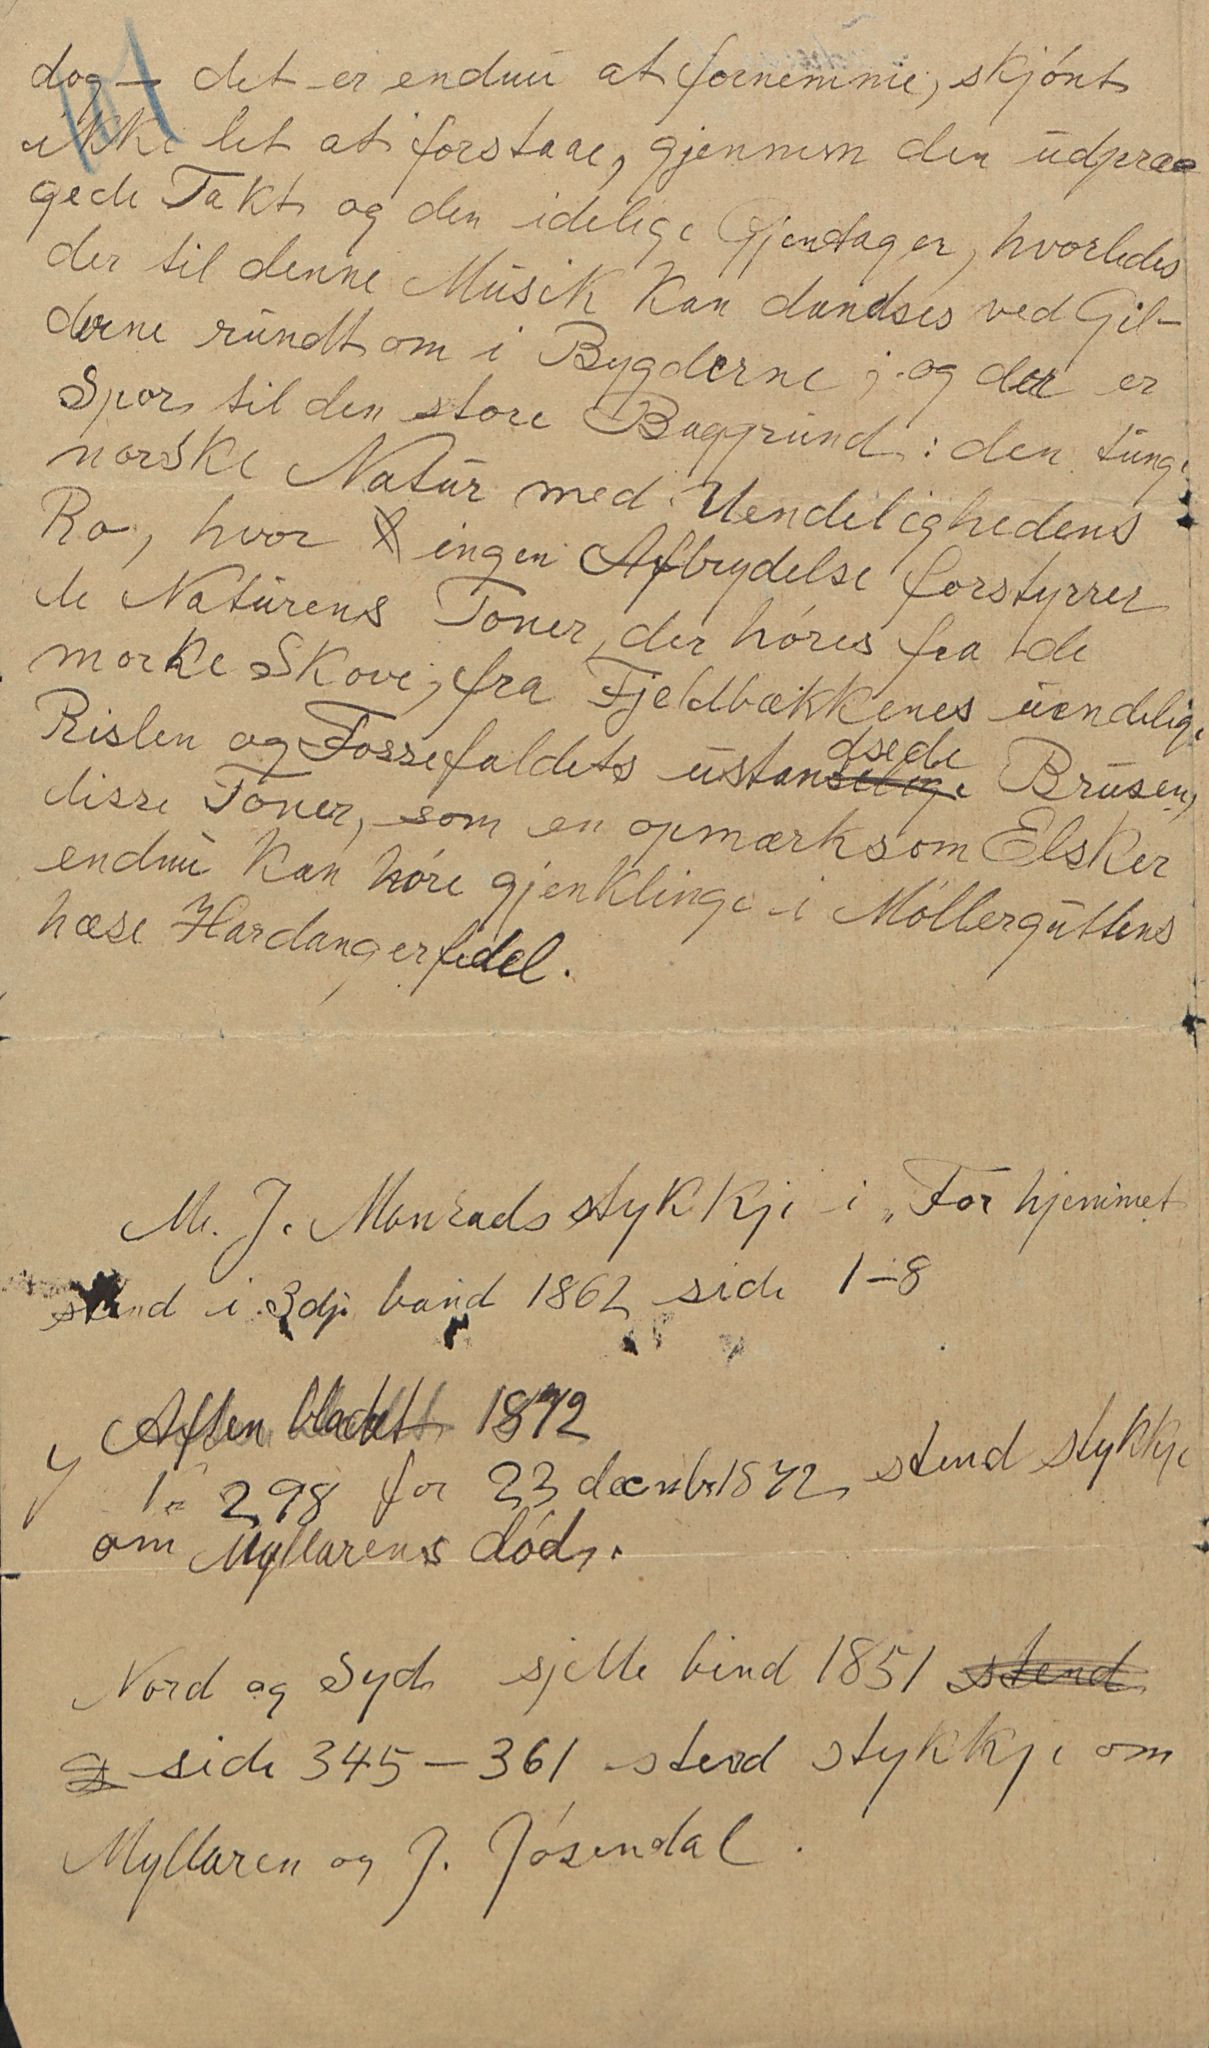 dog – det er endnu at fornemme, skjönt
ikke let at forstaae, gjennem den udpræ-
gede Takt og den idelige Gjentager, hvorledes
der til denne Musik kan dandses ved Gil-
derne rundt om i Bygderne; og der er
Spor til den store Baggrund: den tunge
norske Natur med Uendelighedens
Ro, hvor ingen Afbrydelse forstyrrer
de Naturens Toner, der höres fra de
morke Skove, fra Fjeldbækkenes uendelige
Rislen og Fossefaldets ustandsede Brusen,
disse Toner, som en opmærksom Elsker
endnu kan höre gjenklinge i Möllerguttens
hæse Hardangerfedel.
M. J. Monrads stykkje i „For hjemmet
stend i 3dje band 1862 side 1–8
Aftenbladet 1872
N 298 for 23 decmbr 1872 stend stykkje
om Myllarens död.
Nord og Syd sjette bind 1851 stend
side 345 – 361 stend stykkje om
Myllaren og J. Jösendal.